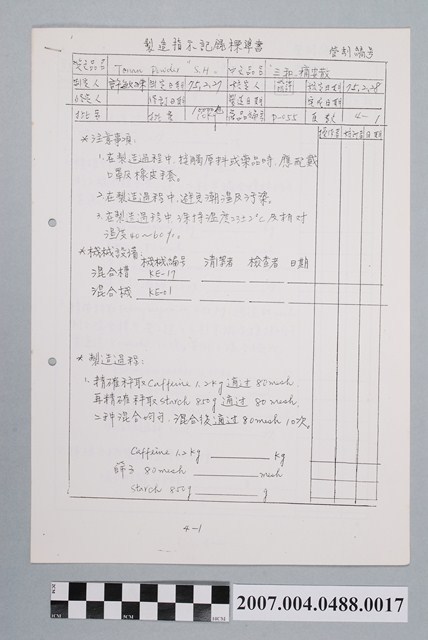 製造指示記錄標準書
管制編號
英文品名 "S.H." 中文品名 "三和"
制定人 制定日期 75.2.27 核定人 核定日期 75.2.28
修定人 修訂日期 製造日期 完成日期
批號 批量 產品編號 P-055 頁數 4-1
操作者 檢查者 日期
*注意事項:
1.在製造過程中,接觸原料或藥品時,應配戴
口罩及橡皮手套。
2.在製造過程中,避免潮濕及汙染。
3.在製造過程中保持溫度23±2°C及相對
濕度40~60%。
*機械設備:
機械編號 清潔者 檢查者 日期
混合槽 KE-17
混合機 KE-01
*製造過程:
1.精確秤取Caffeine 1.2kg 通過 80mesh
再精確秤取starch 850g 通過 80 mesh,
二种混合均勻,混合後通过80mesh 10次。
Caffeine 1.2kg kg
篩子 80mesh mesh
starch 850g g
4-1
2007.004.0488.0017